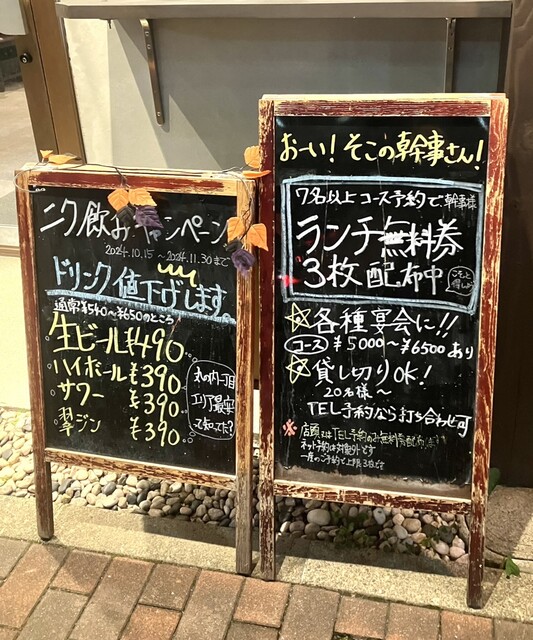 ニク飲みキャンペーン
2024.10.15～2024.11.30まで
ドリンク値下げします。
通常¥540～¥650のところ
生ビール¥490
ハイボール¥390
サワー ¥390
翠ジン ¥390
丸の内一丁目
エリア最安
って知ってた?
おーい!そこの幹事さん!
7名以上コース予約で幹事様
ランチ無料券
3枚配布中
こちらもっと
得しよう
☆各種宴会に!!
コース ¥5000～¥6500あり
☆貸し切りOK!
20名様～
TEL予約なら打ち合わせ可
※店頭又はTEL予約のみ無料券配布
ネット予約は対象外です
一度のご予約で上限3枚です